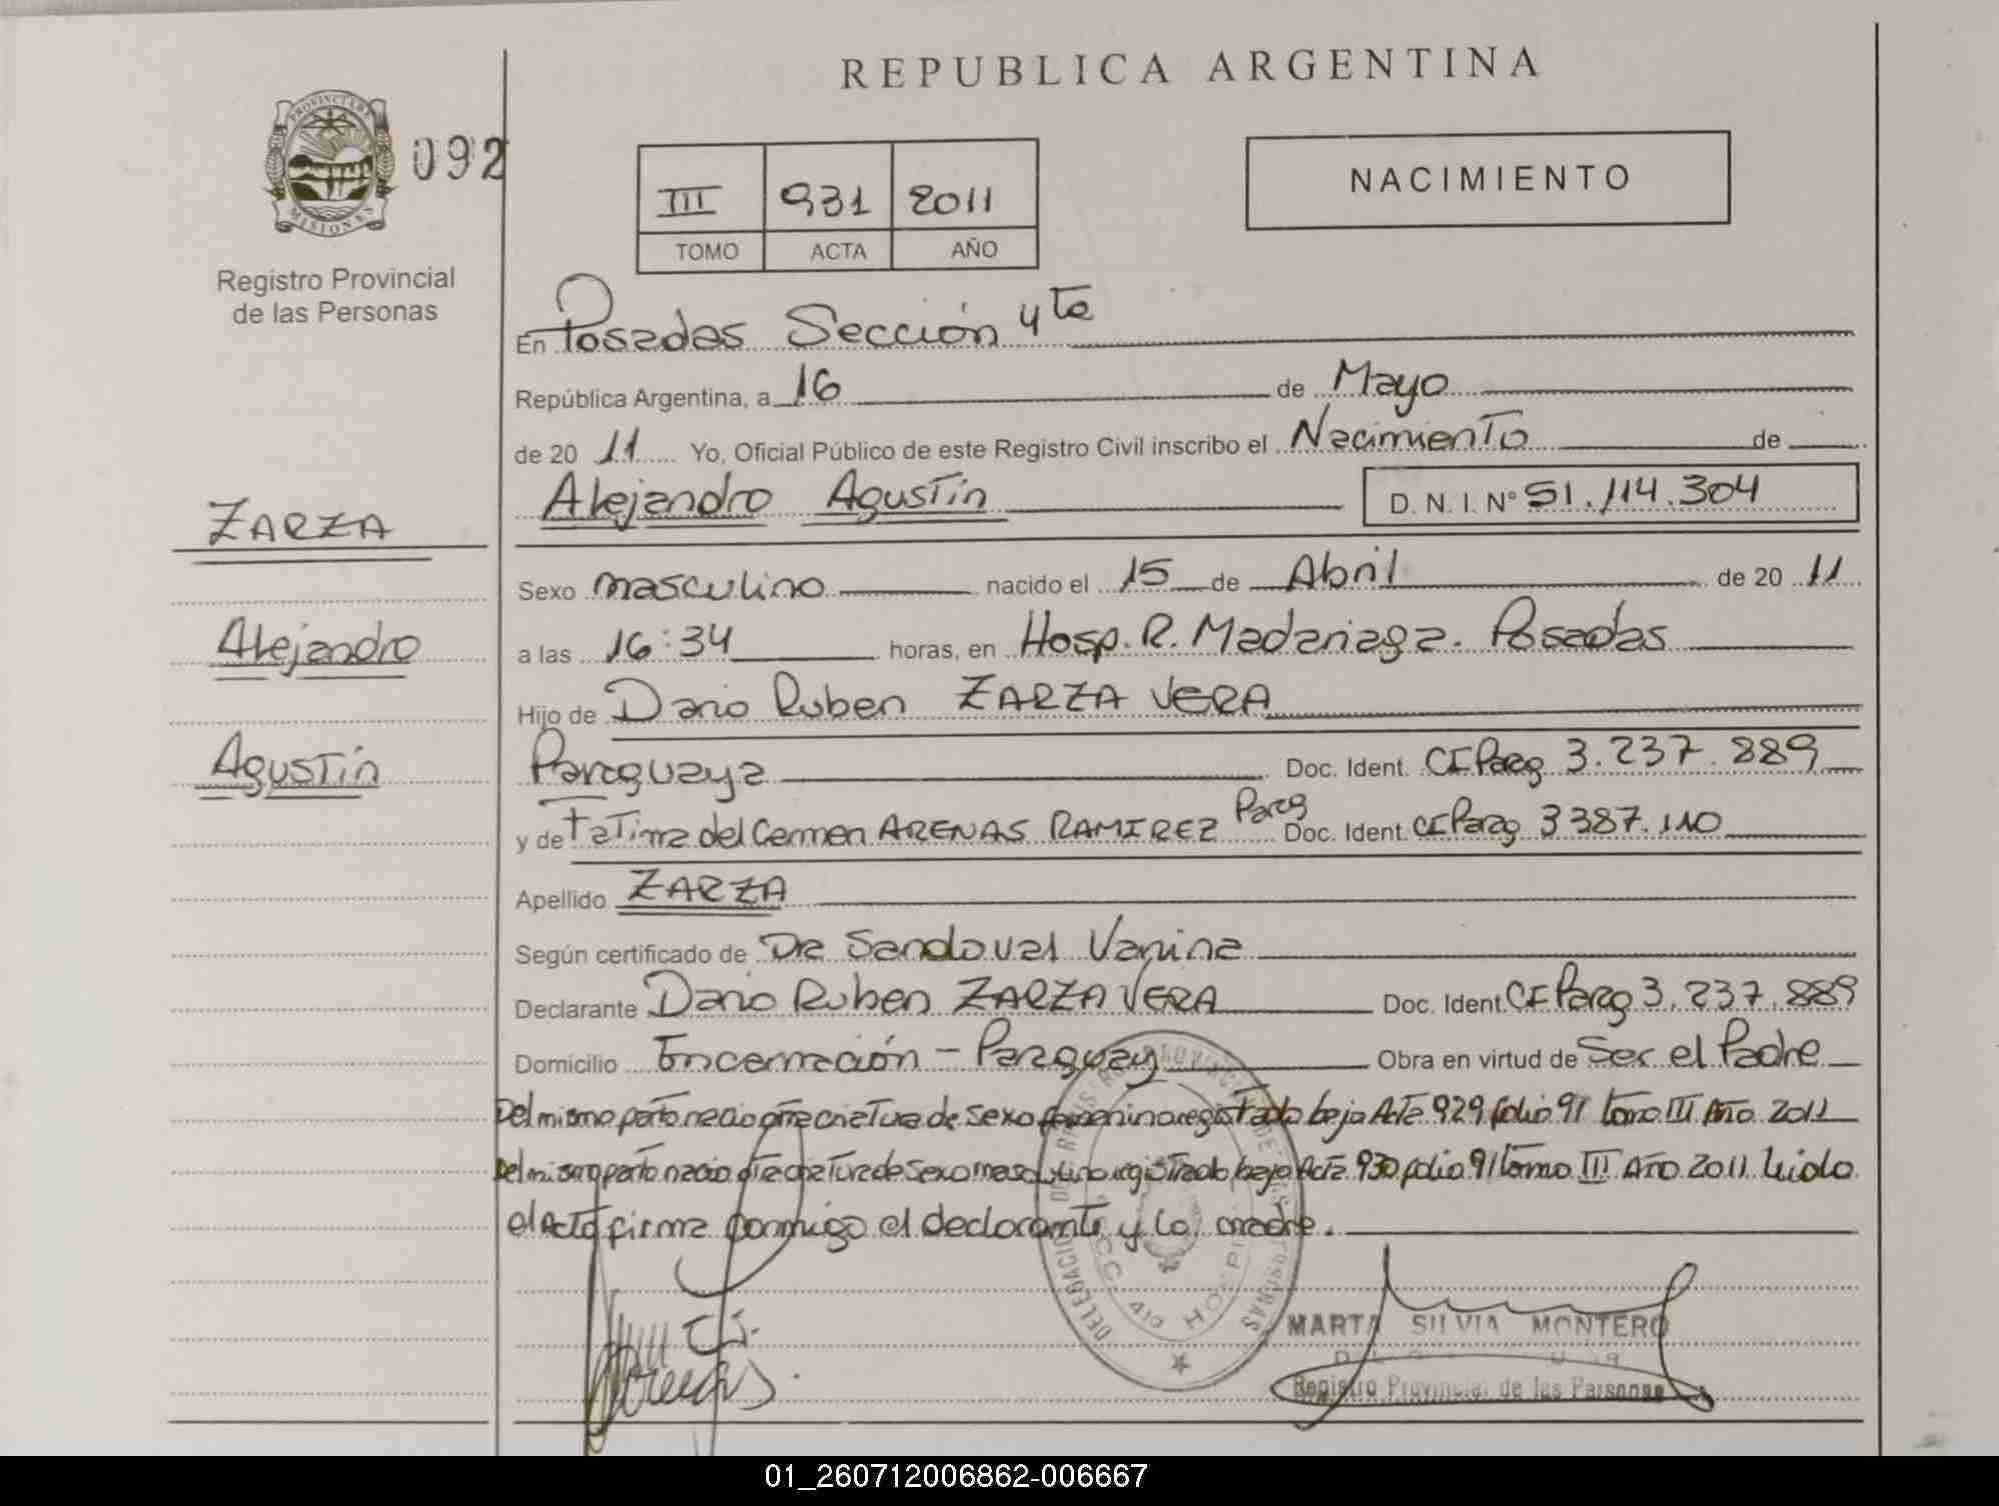 REPUBLICA ARGENTINA
PROVINCIA DE
MISIONES
092
Registro Provincial
de las Personas
III 931 2011
TOMO ACTA AÑO
NACIMIENTO
En Posadas Sección 4ta
República Argentina, a 16 de Mayo
de 20 11 Yo, Oficial Público de este Registro Civil inscribo el Nacimiento de
Alejandro Agustín D. N. I. Nº 51.114.304
ZARZA
Alejandro
Agustín
Sexo masculino nacido el 15 de Abril de 20 11
a las 16:34 horas, en Hosp. R. Madariaga. Posadas
Hijo de Dario Ruben ZARZA VERA
Paraguaya Doc. Ident. CI Parag 3.237.889
y de Fatima del Carmen ARENAS RAMIREZ Parag Doc. Ident. CI Parag 3387.110
Apellido ZARZA
Según certificado de Dra Sandoval Vanina
Declarante Dario Ruben ZARZA VERA Doc. Ident. CI Parag 3.237.889
Domicilio Encarnación - Paraguay Obra en virtud de Ser el Padre
Del mismo parto nacio otra criatura de sexo femenino registrado bajo Acta 929 folio 91 tomo III Año 2011
Del mismo parto nacio otra criatura de sexo masculino registrado bajo Acta 930 folio 91 tomo III Año 2011. Leido
el Acta firma conmigo el declarante y la madre.
MARTA SILVIA MONTERO
Registro Provincial de las Personas
01_260712006862-006667